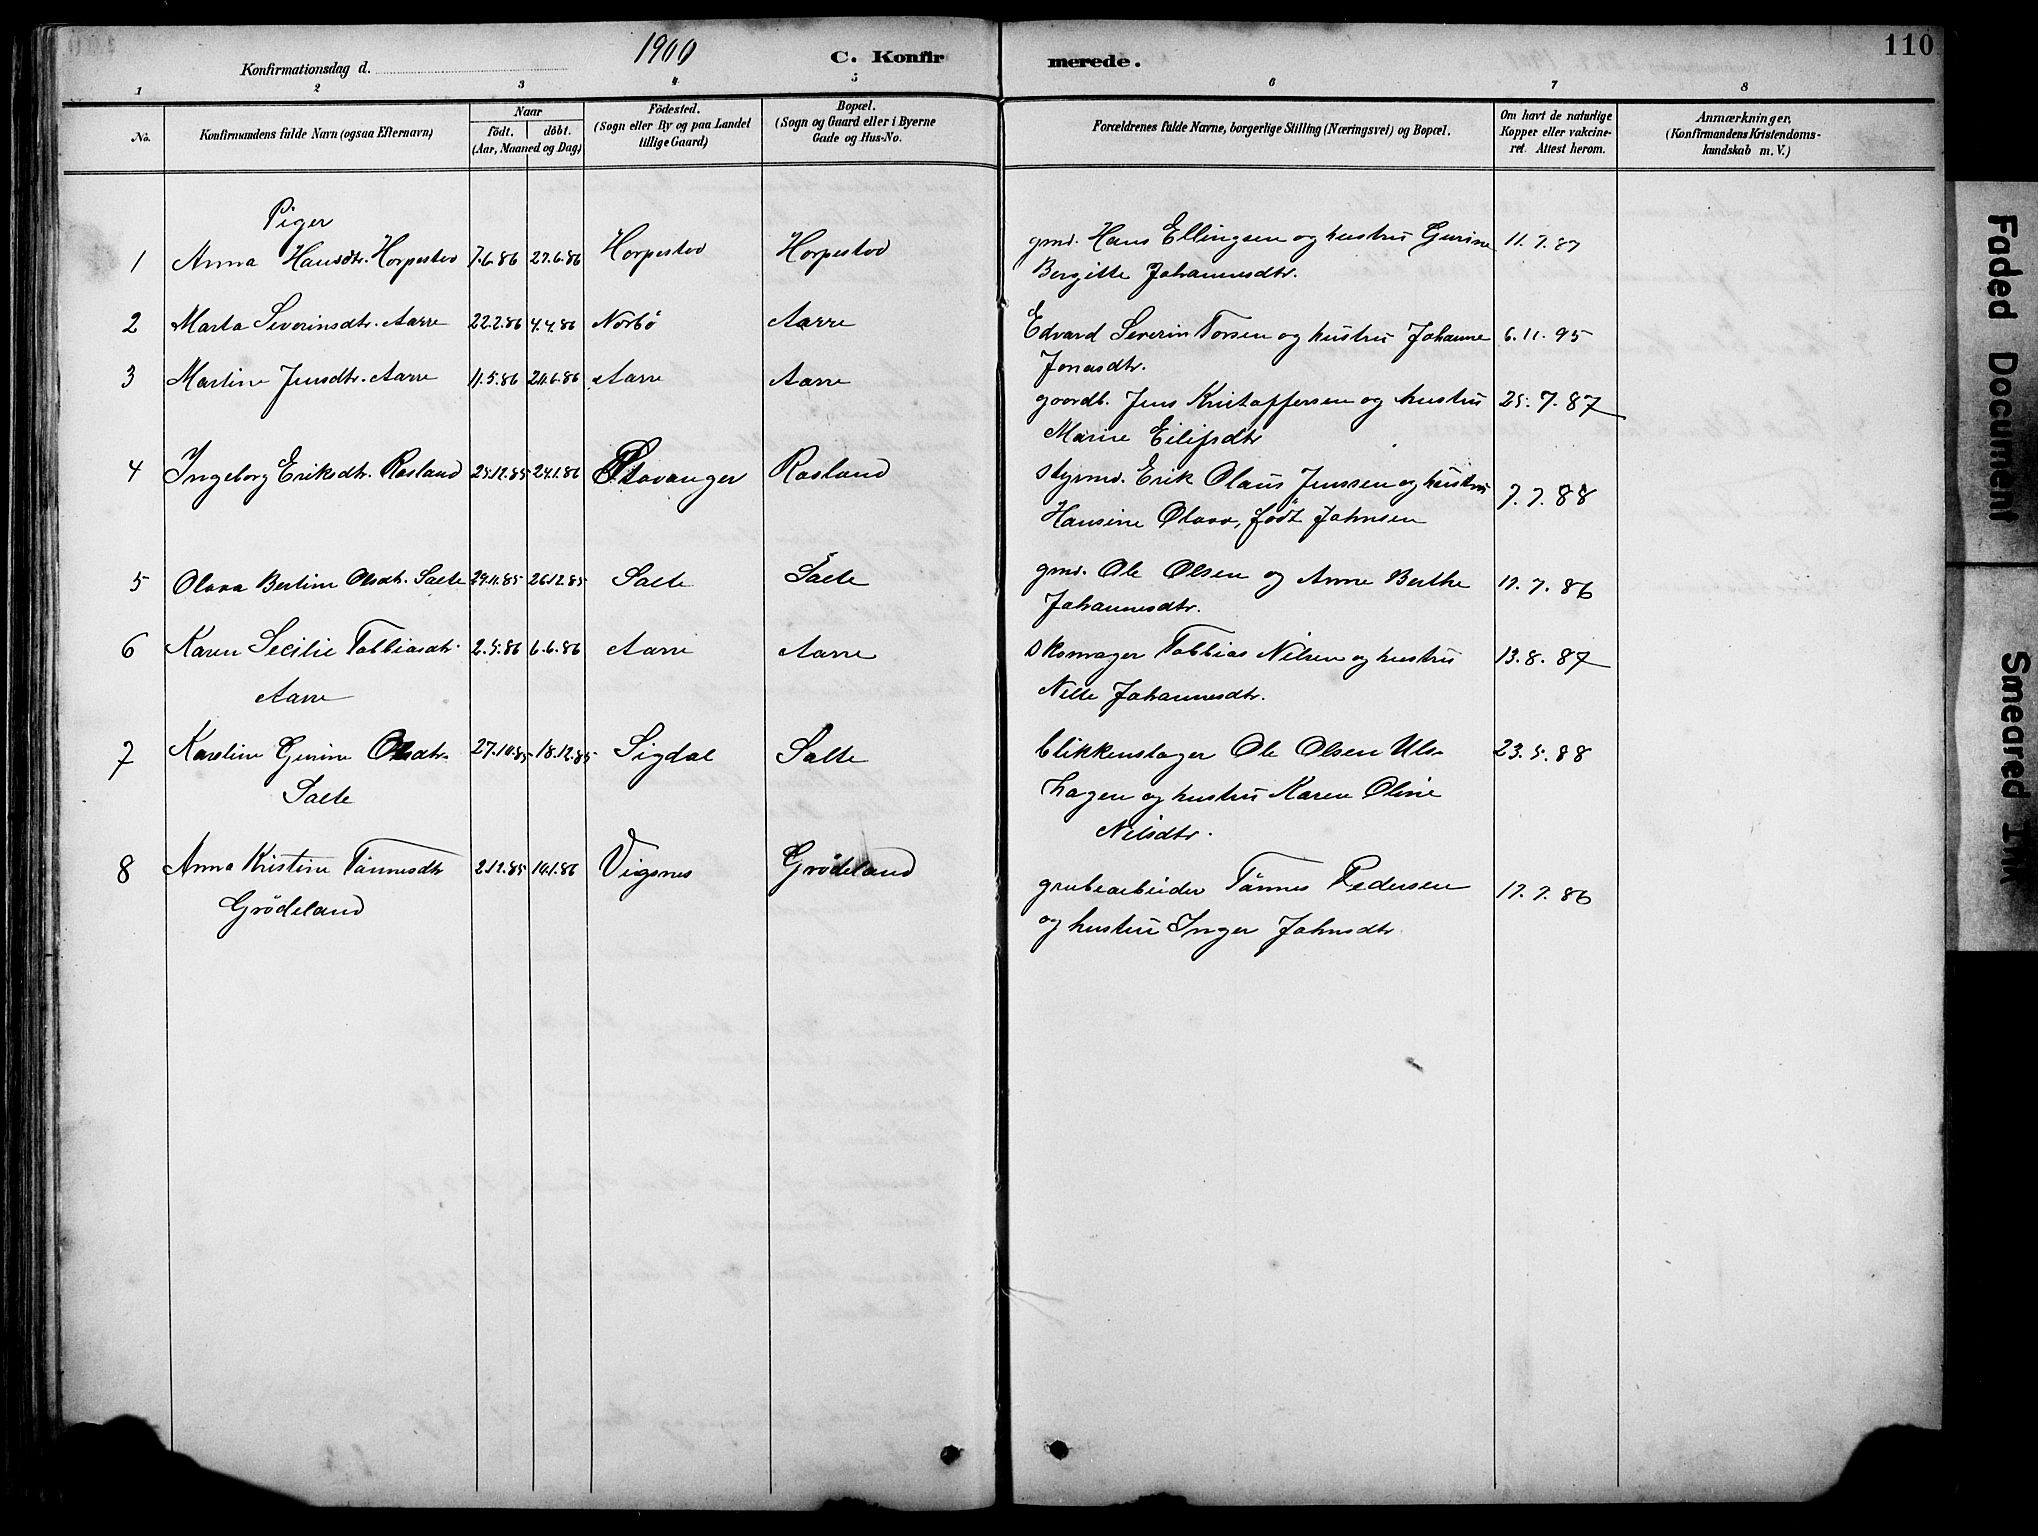 110
1900
Konfirmationsdag d.
C. Konfirmerede.
1 2 3 4 5 6 7 8
No.
Konfirmandens fulde Navn (ogsaa Efternavn)
Naar
födt. döbt.
(Aar, Maaned og Dag)
Födested.
(Sogn eller By og paa Landet
tillige Gaard)
Bopæl.
(Sogn og Gaard eller i Byerne
Gade og Hus-No.
Forældrenes fulde Navne, borgerlige Stilling (Næringsvei) og Bopæl.
Om havt de naturlige
Kopper eller vakcine-
ret. Attest herom.
Anmærkninger,
(Konfirmandens Kristendoms-
kundskab m. V.)
Piger
1 Anna Hansdtr. Horpestad 7.6.86 27.6.86 Horpestad Horpestad gmd. Hans Ellingsen og hustru Gurine 11.7.87
Bergitte Johannesdtr.
2 Marta Severinsdtr. Aarre 22.2.86 4.4.86 Norbö Aarre Edvard Severin Torsen og hustru Johanne 6.11.95
Jonasdtr.
3 Martine Jensdtr. Aarre 11.5.86 20.6.86 Aarre Aarre gaardb. Jens Kristoffersen og hustru 25.7.87
Marine Eilifsdtr
4 Ingeborg Eriksdtr. Rosland 25.12.85 24.1.86 Stavanger Rosland styrmd. Erik Olaus Jenssen og hustru 7.7.88
Hansine Olava, född Johnsen
5 Olava Bertine Olsdtr. Salte 29.11.85 26.12.85 Salte Salte gmd. Ole Olsen og Anne Berthe 17.7.86
Johannesdtr.
6 Karen Secilie Tobbiasdtr. 2.5.86 6.6.86 Aarre Aarre skomager Tobbias Nilsen og hustru 13.8.87
Aarre Nille Johannesdtr.
7 Karoline Gurine Olsdtr. 27.10.85 18.12.85 Sigdal Salte blikkenslager Ole Olsen Uls-
Salte hagen og hustru Karen Oline 23.5.88
Nilsdtr.
8 Anna Kristine Tönnesdtr 2.12.85 10.1.86 Vigsnes Grödeland grubearbeider Tönnes Pedersen 17.7.86
Grödeland og hustru Inger Johnsdtr.
Faded Document
Smeared Ink